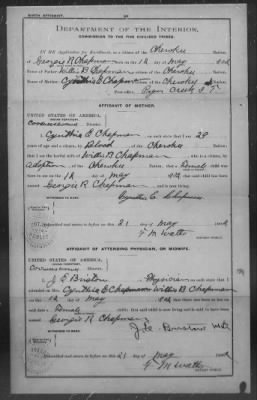 BIRTH AFFIDAVIT.
DEPARTMENT OF THE INTERIOR,
COMMISSION TO THE FIVE CIVILIZED TRIBES.
IN RE Application for Enrollment, as a citizen of the Cherokee Nation,
of Georgie R Chapman, born on the 12 day of May, 190
Name of Father: Willis B Chapman a citizen of the Cherokee Nation.
Name of Mother: Cynthia E Chapman a citizen of the Cherokee Nation.
Pryor Creek I T
AFFIDAVIT OF MOTHER.
UNITED STATES OF AMERICA,
INDIAN TERRITORY,
District.
I, Cynthia E Chapman, on oath state that I am 28
years of age and a citizen by Blood, of the Cherokee Nation;
that I am the lawful wife of Willis B Chapman, who is a citizen, by
adoption of the Cherokee Nation; that a Female child was
born to me on 12 day of May, 190 ; that said child has been
named Georgie R Chapman, and is now living.
Cynthia E Chapman
WITNESSES TO MARK:
Subscribed and sworn to before me this 21 day of May, 190
NOTARY PUBLIC.
AFFIDAVIT OF ATTENDING PHYSICIAN, OR MIDWIFE.
UNITED STATES OF AMERICA,
INDIAN TERRITORY,
District.
I, J E Bristow, a Physician, on oath state that I
attended on Mrs. Cynthia E Chapman, wife of Willis B Chapman
on the 12 day of May, 190 ; that there was born to her on
said date a Female child; that said child is now living and is said to have been
named Georgie R Chapman
WITNESSES TO MARK:
Subscribed and sworn to before me this 21 day of May, 190
NOTARY PUBLIC.